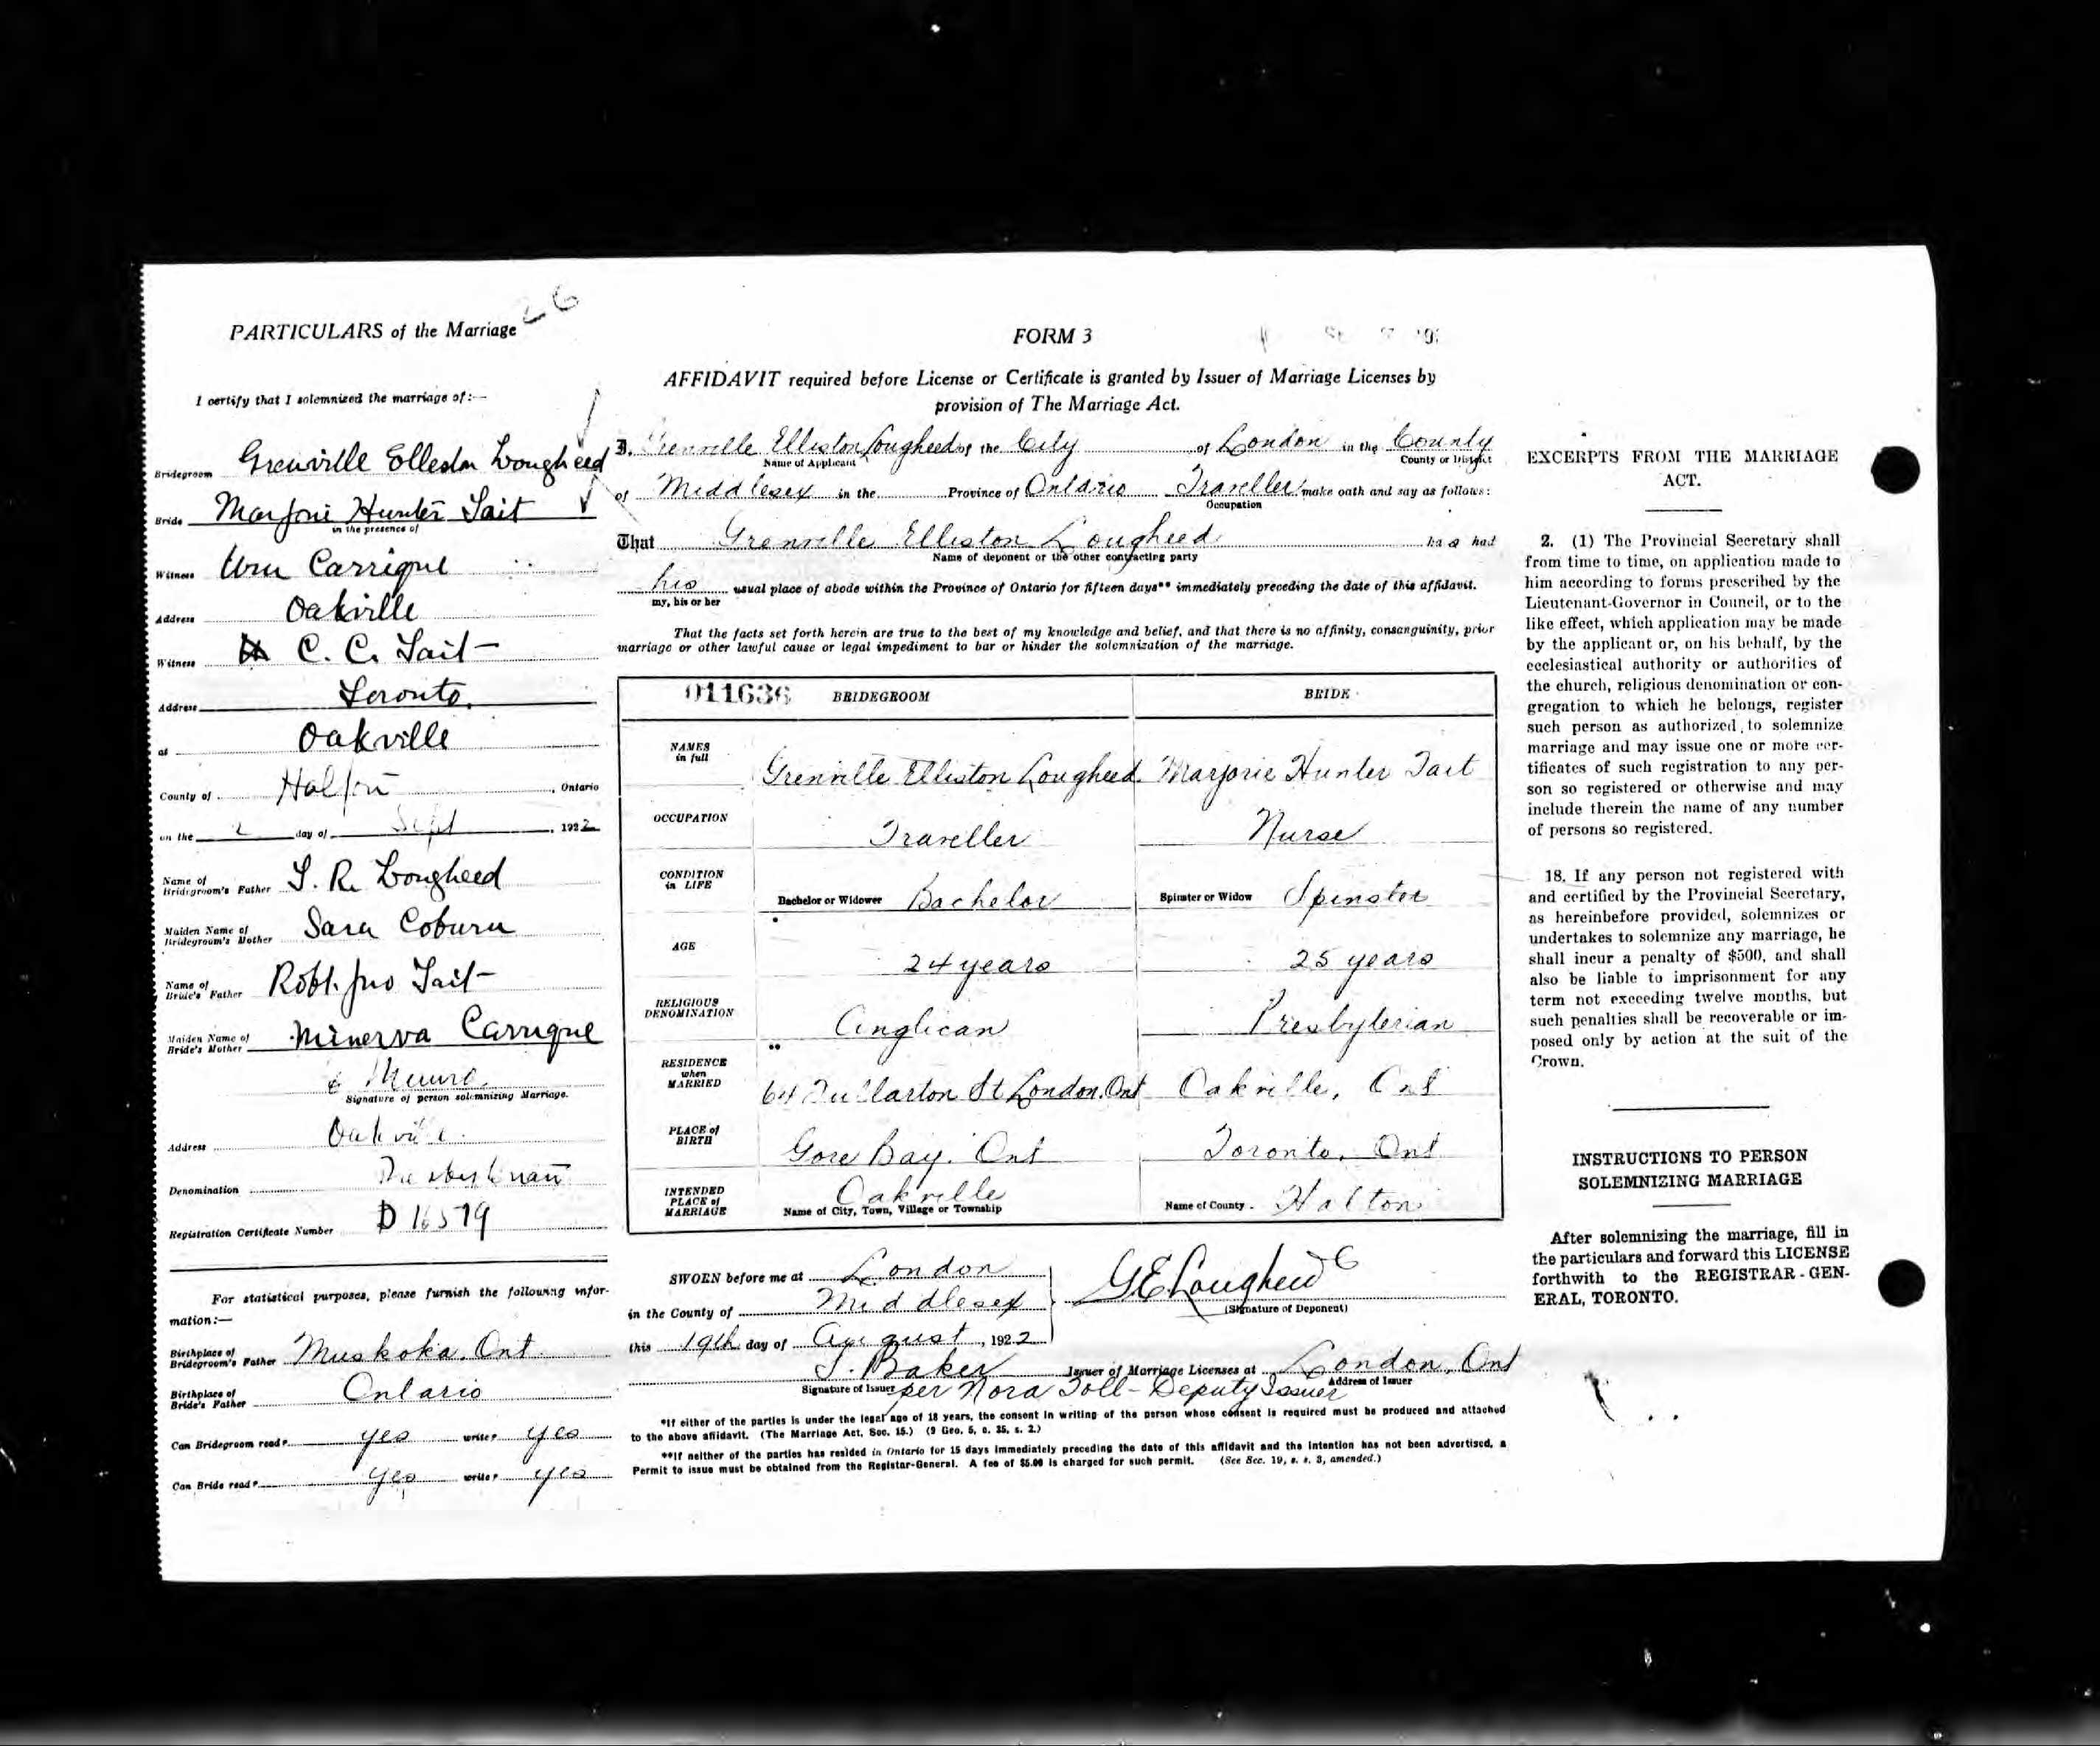 26
PARTICULARS of the Marriage
I certify that I solemnized the marriage of:—
Bridegroom Grenville Elleston Lougheed
Bride Marjorie Hunter Tait
in the presence of
Witness Wm Carrique
Address Oakville
Witness C. C. Tait
Address Toronto.
at Oakville
County of Halton, Ontario
on the 2 day of Sept, 1922
Name of
Bridegroom's Father T. R. Lougheed
Maiden Name of
Bridegroom's Mother Sara Coburn
Name of
Bride's Father Robt. Jno Tait
Maiden Name of
Bride's Mother Minerva Carrique
Munro
Signature of person solemnizing Marriage.
Address Oakville
Denomination Presbyterian
Registration Certificate Number D 16579
For statistical purposes, please furnish the following infor-
mation:—
Birthplace of
Bridegroom's Father Muskoka, Ont.
Birthplace of
Bride's Father Ontario
Can Bridegroom read? yes write? yes
Can Bride read? yes write? yes
FORM 3
AFFIDAVIT required before License or Certificate is granted by Issuer of Marriage Licenses by
provision of The Marriage Act.
I, Grenville Elliston Lougheed of the City of London in the County
Name of Applicant County or District
of Middlesex in the Province of Ontario Traveller make oath and say as follows:
Occupation
That Grenville Elliston Lougheed has had
Name of deponent or the other contracting party
his usual place of abode within the Province of Ontario for fifteen days** immediately preceding the date of this affidavit.
my, his or her
That the facts set forth herein are true to the best of my knowledge and belief, and that there is no affinity, consanguinity, prior
marriage or other lawful cause or legal impediment to bar or hinder the solemnization of the marriage.
011636 BRIDEGROOM BRIDE
NAMES
in full
Grenville Elliston Lougheed Marjorie Hunter Tait
OCCUPATION
Traveller Nurse
CONDITION
in LIFE
Bachelor or Widower Bachelor Spinster or Widow Spinster
AGE
24 years 25 years
RELIGIOUS
DENOMINATION
Anglican Presbyterian
RESIDENCE
when
MARRIED
64 Fullarton St London, Ont Oakville, Ont
PLACE of
BIRTH
Gore Bay. Ont Toronto, Ont
INTENDED
PLACE of
MARRIAGE
Oakville
Name of City, Town, Village or Township Name of County. Halton
SWORN before me at London
in the County of Middlesex
this 19th day of August, 1922
G E Lougheed
(Signature of Deponent)
T. Baker Issuer of Marriage Licenses at London, Ont
Signature of Issuer per Nora Toll - Deputy Issuer Address of Issuer
*If either of the parties is under the legal age of 18 years, the consent in writing of the person whose consent is required must be produced and attached
to the above affidavit. (The Marriage Act, Sec. 15.) (9 Geo. 5, c. 35, s. 2.)
**If neither of the parties has resided in Ontario for 15 days immediately preceding the date of this affidavit and the intention has not been advertised, a
Permit to issue must be obtained from the Registar-General. A fee of $5.00 is charged for such permit. (See Sec. 19, s. s. 3, amended.)
EXCERPTS FROM THE MARRIAGE
ACT.
2. (1) The Provincial Secretary shall
from time to time, on application made to
him according to forms prescribed by the
Lieutenant-Governor in Council, or to the
like effect, which application may be made
by the applicant or, on his behalf, by the
ecclesiastical authority or authorities of
the church, religious denomination or con-
gregation to which he belongs, register
such person as authorized to solemnize
marriage and may issue one or more cer-
tificates of such registration to any per-
son so registered or otherwise and may
include therein the name of any number
of persons so registered.
18. If any person not registered with
and certified by the Provincial Secretary,
as hereinbefore provided, solemnizes or
undertakes to solemnize any marriage, he
shall incur a penalty of $500, and shall
also be liable to imprisonment for any
term not exceeding twelve months, but
such penalties shall be recoverable or im-
posed only by action at the suit of the
Crown.
INSTRUCTIONS TO PERSON
SOLEMNIZING MARRIAGE
After solemnizing the marriage, fill in
the particulars and forward this LICENSE
forthwith to the REGISTRAR-GEN-
ERAL, TORONTO.